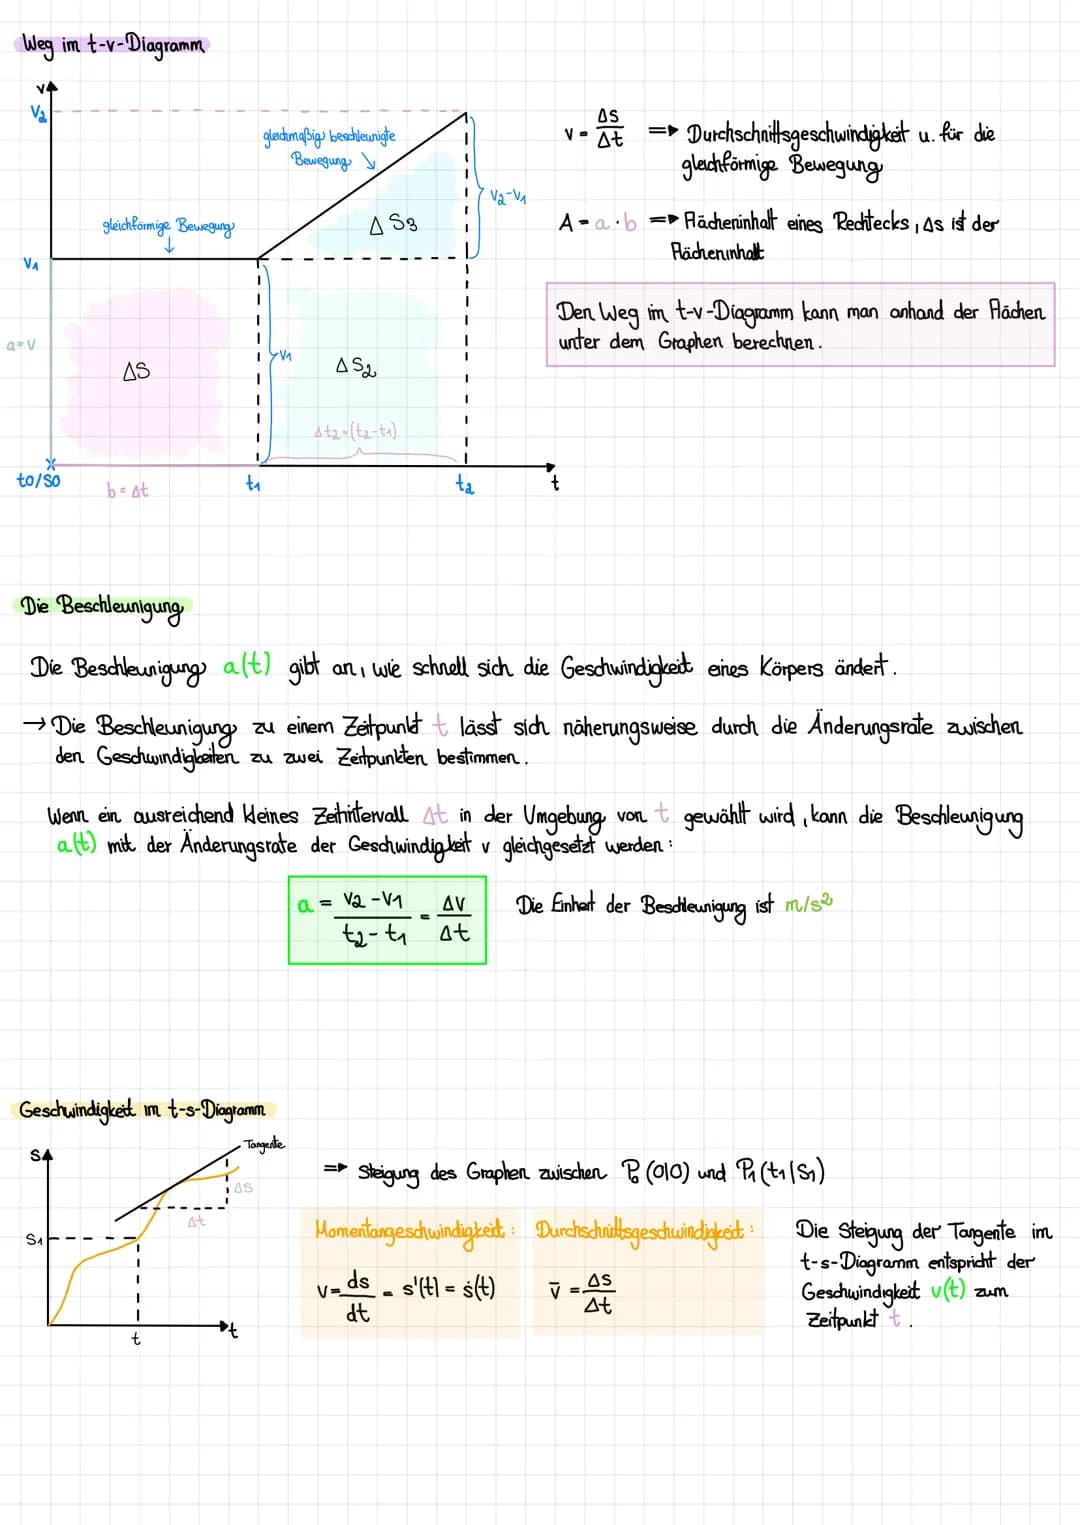 Weg im t-v-Diagramm
v
V2
gleichmäßig beschleunigte
Bewegung
v = Δs/Δt => Durchschnittsgeschwindigkeit u. für die
gleichförmige Bewegung
V2-V1
gleichförmige Bewegung
Δ S3
A = a · b => Flächeninhalt eines Rechtecks, Δs ist der
Flächeninhalt
V1
Den Weg im t-v-Diagramm kann man anhand der Flächen
unter dem Graphen berechnen.
a=V
V1
ΔS
Δ S2
Δt2=(t2-t1)
to/so
b = Δt
t1
t2
t
Die Beschleunigung
Die Beschleunigung a(t) gibt an, wie schnell sich die Geschwindigkeit eines Körpers ändert.
→ Die Beschleunigung zu einem Zeitpunkt t lässt sich näherungsweise durch die Änderungsrate zwischen
den Geschwindigkeiten zu zwei Zeitpunkten bestimmen.
Wenn ein ausreichend kleines Zeitintervall Δt in der Umgebung von t gewählt wird, kann die Beschleunigung
a(t) mit der Änderungsrate der Geschwindigkeit v gleichgesetzt werden:
a = (v2-v1)/(t2-t1) = Δv/Δt
Die Einheit der Beschleunigung ist m/s²
Geschwindigkeit im t-s-Diagramm
S
Tangente
Δs
Δt
S1
t
t
=> Steigung des Graphen zwischen P0 (0|0) und P1 (t1|S1)
Momentangeschwindigkeit:
v = ds/dt = s'(t) = ṡ(t)
Durchschnittsgeschwindigkeit:
v̄ = Δs/Δt
Die Steigung der Tangente im
t-s-Diagramm entspricht der
Geschwindigkeit v(t) zum
Zeitpunkt t.